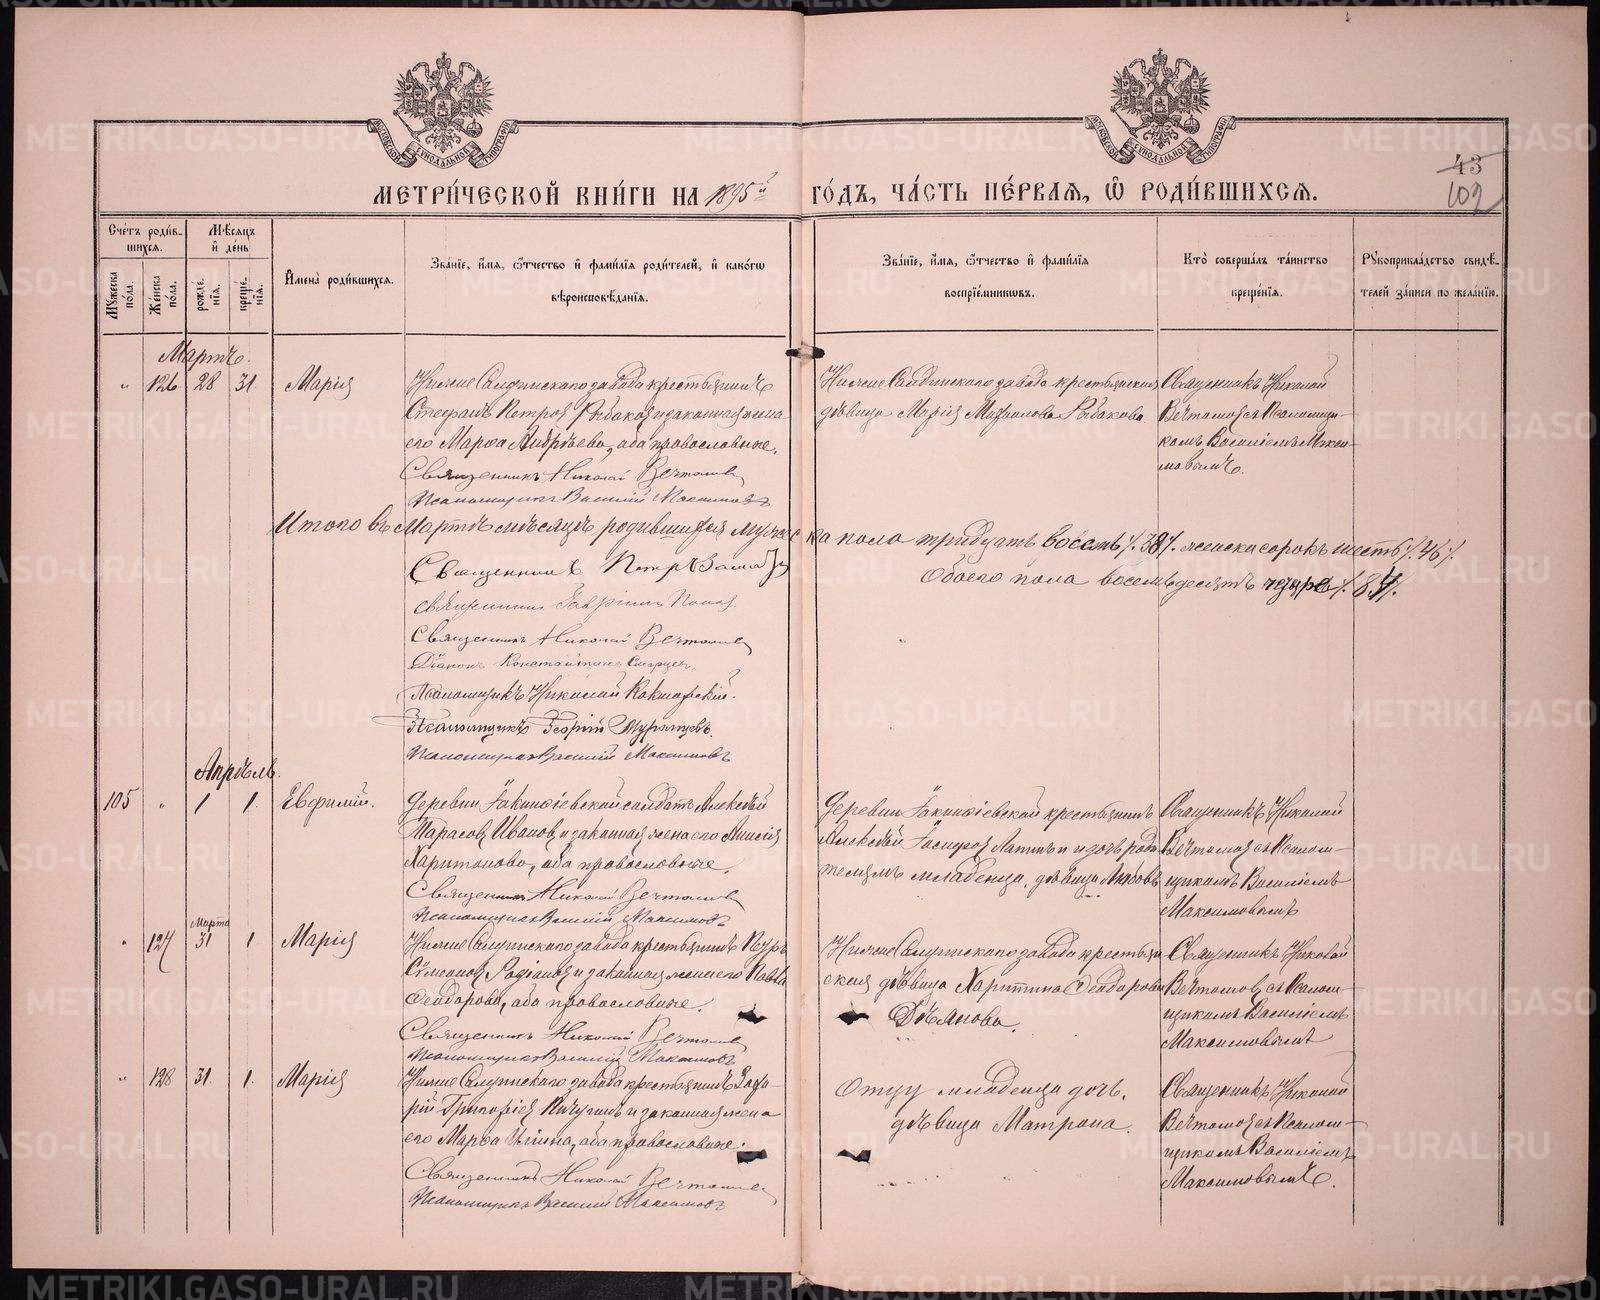 МЕТРИ́ЧЕСКОЙ КНИ́ГИ НА 1895й ГО́ДЪ, ЧА́СТЬ ПЕ́РВАЯ, Ѡ РОДИ́ВШИХСЯ.
43
102
Сче́тъ роди́вшихся.
Мѣ́сяцъ и де́нь
Му́жеска по́ла.
Же́нска по́ла.
рожде́нія.
креще́нія.
И́мена̀ роди́вшихся.
Зва́ніе, и́мя, о́тчество и фами́лія роди́телей, и како́гѡ
вѣроисповѣ́данія.
Зва́ніе, и́мя, о́тчество и фами́лія
воспріе́мниковъ.
Кто̀ соверша́лъ та́инство
креще́нія.
Рукоприкла́дство свидѣ́-
телей за́писи по жела́нію.
Мартъ.
" 126 28 31. Марія
Нижне Салдинскаго завода крестьянинъ
Стефанъ Петровъ Рыбаковъ и законная жена
его Марѳа Андрѣева, оба православные.
Священникъ Николай Вечтомовъ
Псаломщикъ Василій Максимовъ
Нижне Салдинскаго завода крестьянская
дѣвица Марія Рыбакова
Священникъ Николай
Вечтомовъ съ Псаломщи-
комъ Василіемъ Макси-
мовымъ.
Итого въ Мартѣ мѣсяцѣ родившихся мужеска пола тридцать восемь /.38/. женска сорокъ шесть /.46/.
Обоего пола восемьдесятъ четыре /.84/.
Священникъ Петръ
Священникъ Гавріилъ Поповъ.
Священникъ Николай Вечтомовъ
Діаконъ Константинъ
Псаломщикъ Николай Кокшарскій.
Псаломщикъ Георгій
Псаломщикъ Василій Максимовъ
Апрѣль.
105 " 1 1. Евфимій.
деревни Іакинѳіевской солдатъ Алексѣй
Тарасовъ Ивановъ и законная жена его Анисія
Харитонова, оба православные.
Священникъ Николай Вечтомовъ
Псаломщикъ Василій Максимовъ
деревни Іакинѳіевской крестьянинъ
Алексѣй Іосифовъ и дочь роди
телямъ младенца, дѣвица Любовь
Священникъ Николай
Вечтомовъ съ Псалом-
щикомъ Василіемъ
Максимовымъ
Марта
" 127 31 1 Марія
Нижне Салдинскаго завода крестьянинъ Петръ
Сѵмеоновъ Родіоновъ и законная жена его
Ѳеодорова, оба православные.
Священникъ Николай Вечтомовъ
Псаломщикъ Василій Максимовъ
Нижне Салдинскаго завода крестьян
ская дѣвица Харитина Ѳеодорова
Дѣянова.
Священникъ Николай
Вечтомовъ съ Псалом-
щикомъ Василіемъ
Максимовымъ
" 128 31. 1. Марія
Нижне Салдинскаго завода крестьянинъ Заха-
рій Григорьевъ Пичугинъ и законная жена
его Марѳа Ильина, оба православные.
Священникъ Николай Вечтомовъ
Псаломщикъ Василій Максимовъ
Отцу младенца дочь,
дѣвица Матрона.
Священникъ Николай
Вечтомовъ съ Псалом-
щикомъ Василіемъ
Максимовымъ.
METRIKI.GASO-URAL.RU